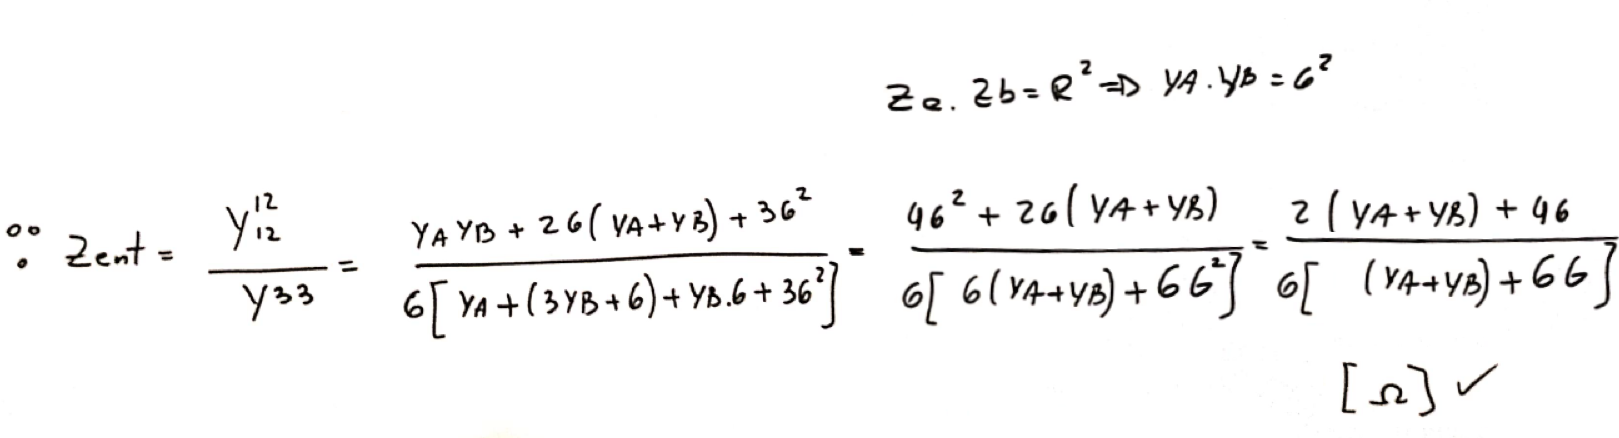 Za. Zb = R² ⇒ YA.YB = G²
∴ Zent = Y¹²₁₂ / Y33 = (YAYB + 2G(YA+YB) + 3G²) / (G[YA+(3YB+G)+YB.G+3G²]) = (4G² + 2G(YA+YB)) / (G[G(YA+YB)+6G²]) = (2(YA+YB)+4G) / (G[(YA+YB)+6G])
[Ω] ✓